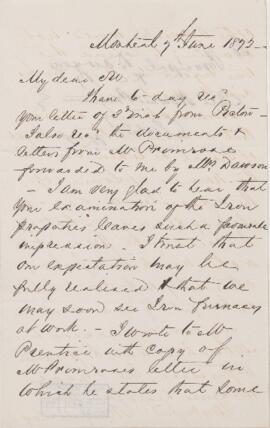 Montreal 9th June 1873
My dear
I have to-day recd
your letter of 2d inst from Pictou
I also recd the documents &
letters from Mr Primrose
forwarded to me by Mrs Dawson
- I am very glad to hear that
your examination of the Iron
properties leaves such a favorable
impression. I trust that
our expectation may be
fully realised & that we
may soon see Iron furnaces
at work. - I wrote to Mr
Prentice with copy of
Mr Primroses letter in
which he states that some